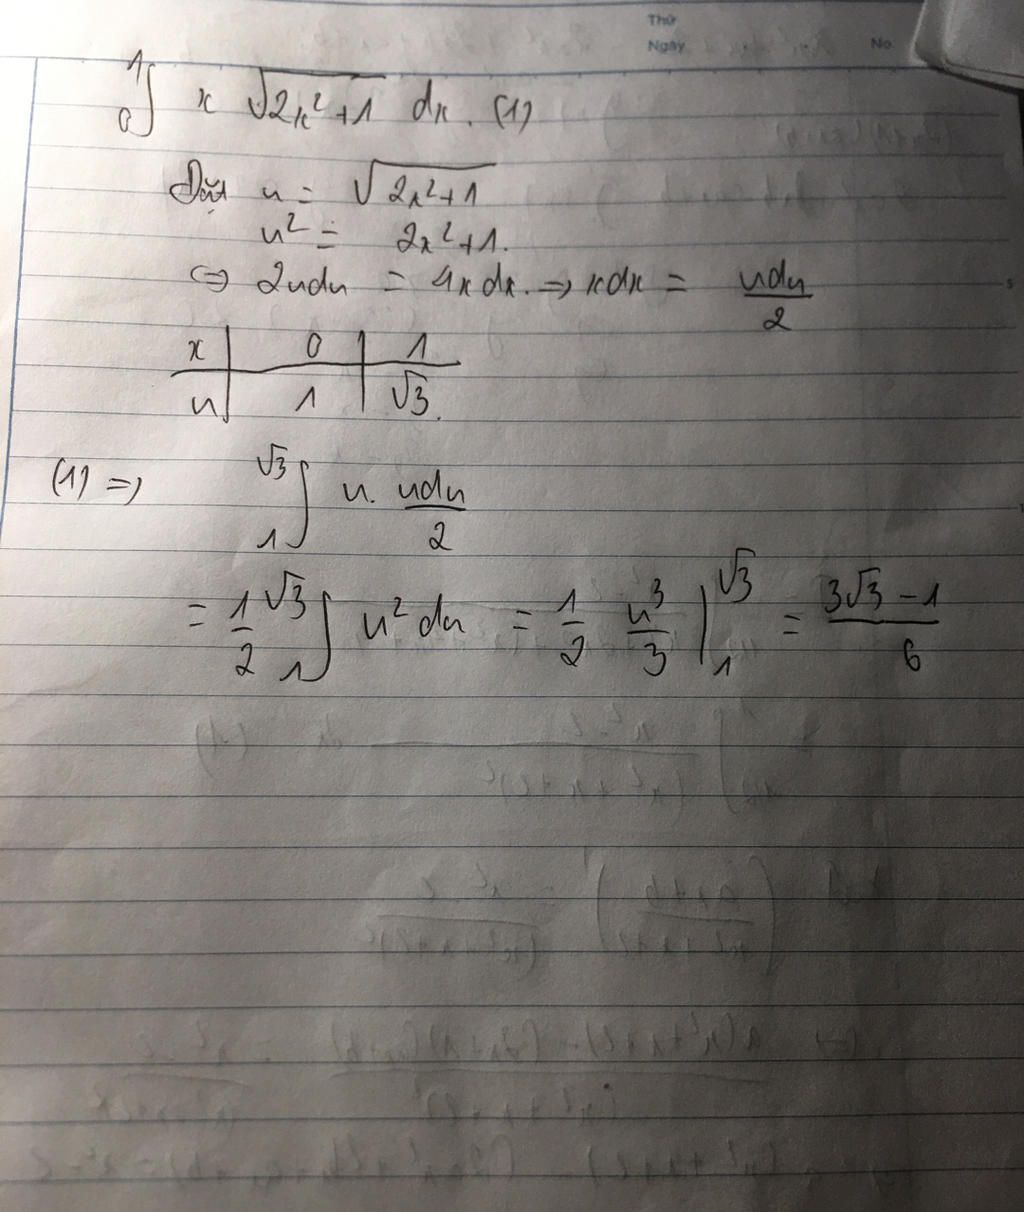 Thứ
Ngày No.
₀∫¹ x √(2x²+1) dx. (1)
Đặt u = √(2x²+1)
u² = 2x²+1.
⇔ 2udu = 4x dx. ⇒ xdx = udu/2
x | 0 | 1
u | 1 | √3.
(1) ⇒ ₁∫^√3 u. udu/2
= 1/2 ₁∫^√3 u² du = 1/2 u³/3 |₁^√3 = (3√3 - 1)/6